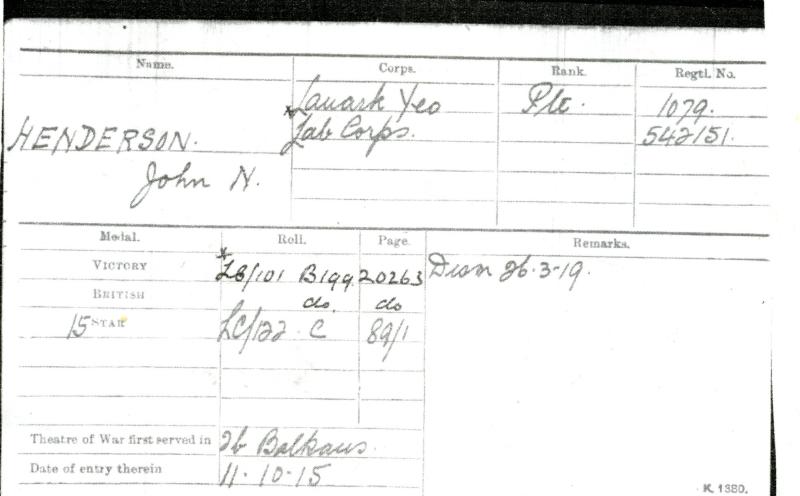 Name. Corps. Rank. Regtl. No.
*Lanark Yeo Pte. 1079.
HENDERSON. Lab Corps. 542151.
John N.
Medal. Roll. Page. Remarks.
VICTORY *LB/101 B199 20263 Disem 26.3.19.
BRITISH do. do
15 STAR LC/122 C 89/1
Theatre of War first served in 2b Balkans.
Date of entry therein 11.10.15
K. 1380.